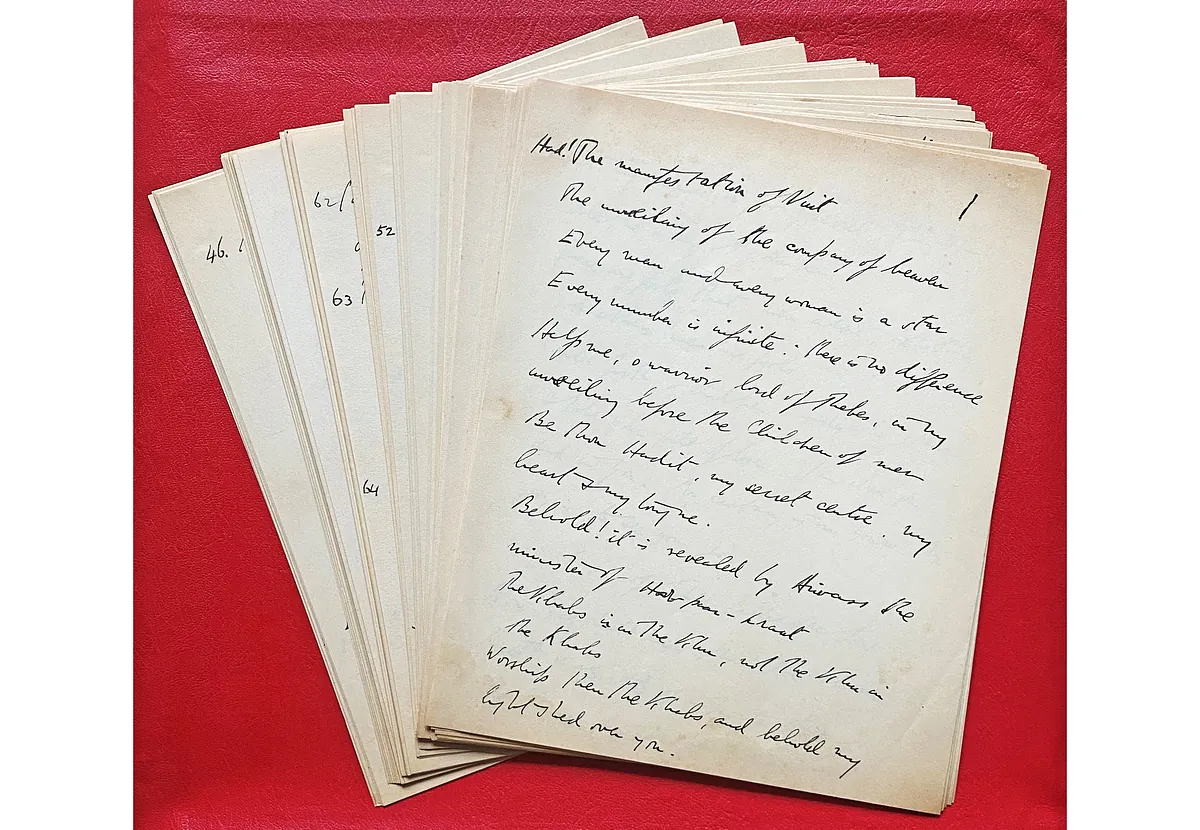 46.
62
63
52
64
1
Had! The manifestation of Nuit
The unveiling of the company of heaven
Every man and every woman is a star
Every number is infinite: there is no difference
Help me, o warrior lord of Thebes, in my
unveiling before the Children of men
Be thou Hadit, my secret centre, my
heart & my tongue.
Behold! it is revealed by Aiwass the
minister of Hoor-paar-kraat
The Khabs is in the Khu, not the Khu in
the Khabs
Worship then the Khabs, and behold my
light shed over you.